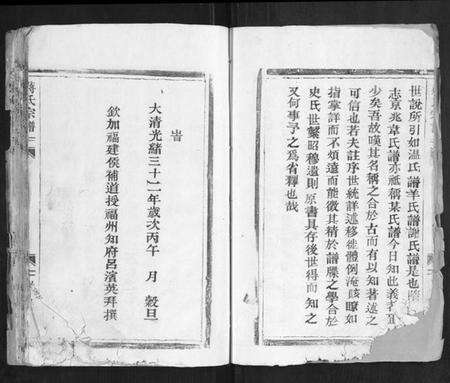 世說所引如溫氏譜羊氏譜謝氏譜是也
志京兆韋氏譜亦祗稱某氏譜今日知此義者
少矣吾故嘆其名稱之合於古而有以知著述之
可信也若夫註序世統詳述移徙體例淹賅瞭如
指掌詳而不煩遠而能徵其精於譜牒之學合於
史氏世繫昭穆遺則原書具存後世得而知之
又何事予之為省釋也哉
旹
大清光緒三十二年歲次丙午 月 穀旦
欽加福建候補道授福州知府呂濱英拜撰
蔣氏宗譜